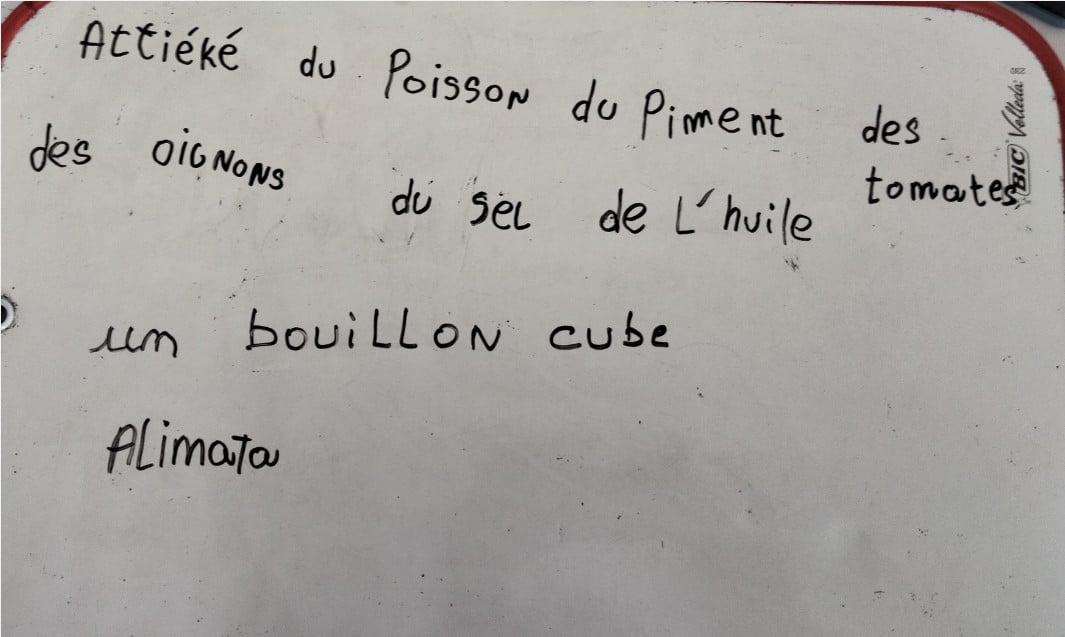 Attiéké du Poisson du Piment des tomates
des oignons du sel de L'huile
un bouillon cube
Alimata
BIC Velleda